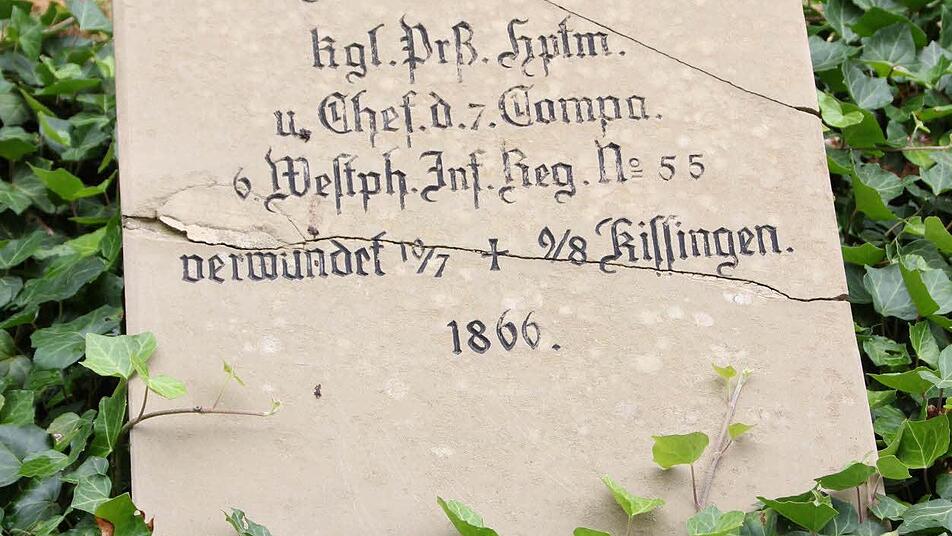 kgl. Prß. Hptm.
u. Chef. d. 7. Compa.
6. Westph. Inf. Reg. No 55
verwundet 10/7 + 9/8 Kissingen.
1866.